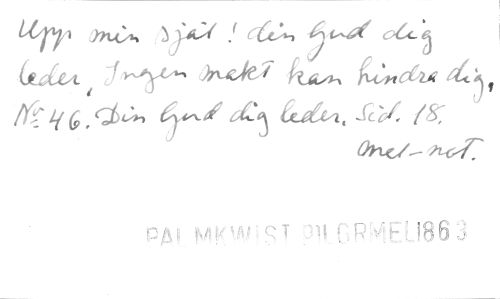 Upp min själ! din Gud dig
leder, Ingen makt kan hindra dig.
Nr 46. Din Gud dig leder. Sid. 18.
mel-not.
PALMKWIST PILGRMEL1863